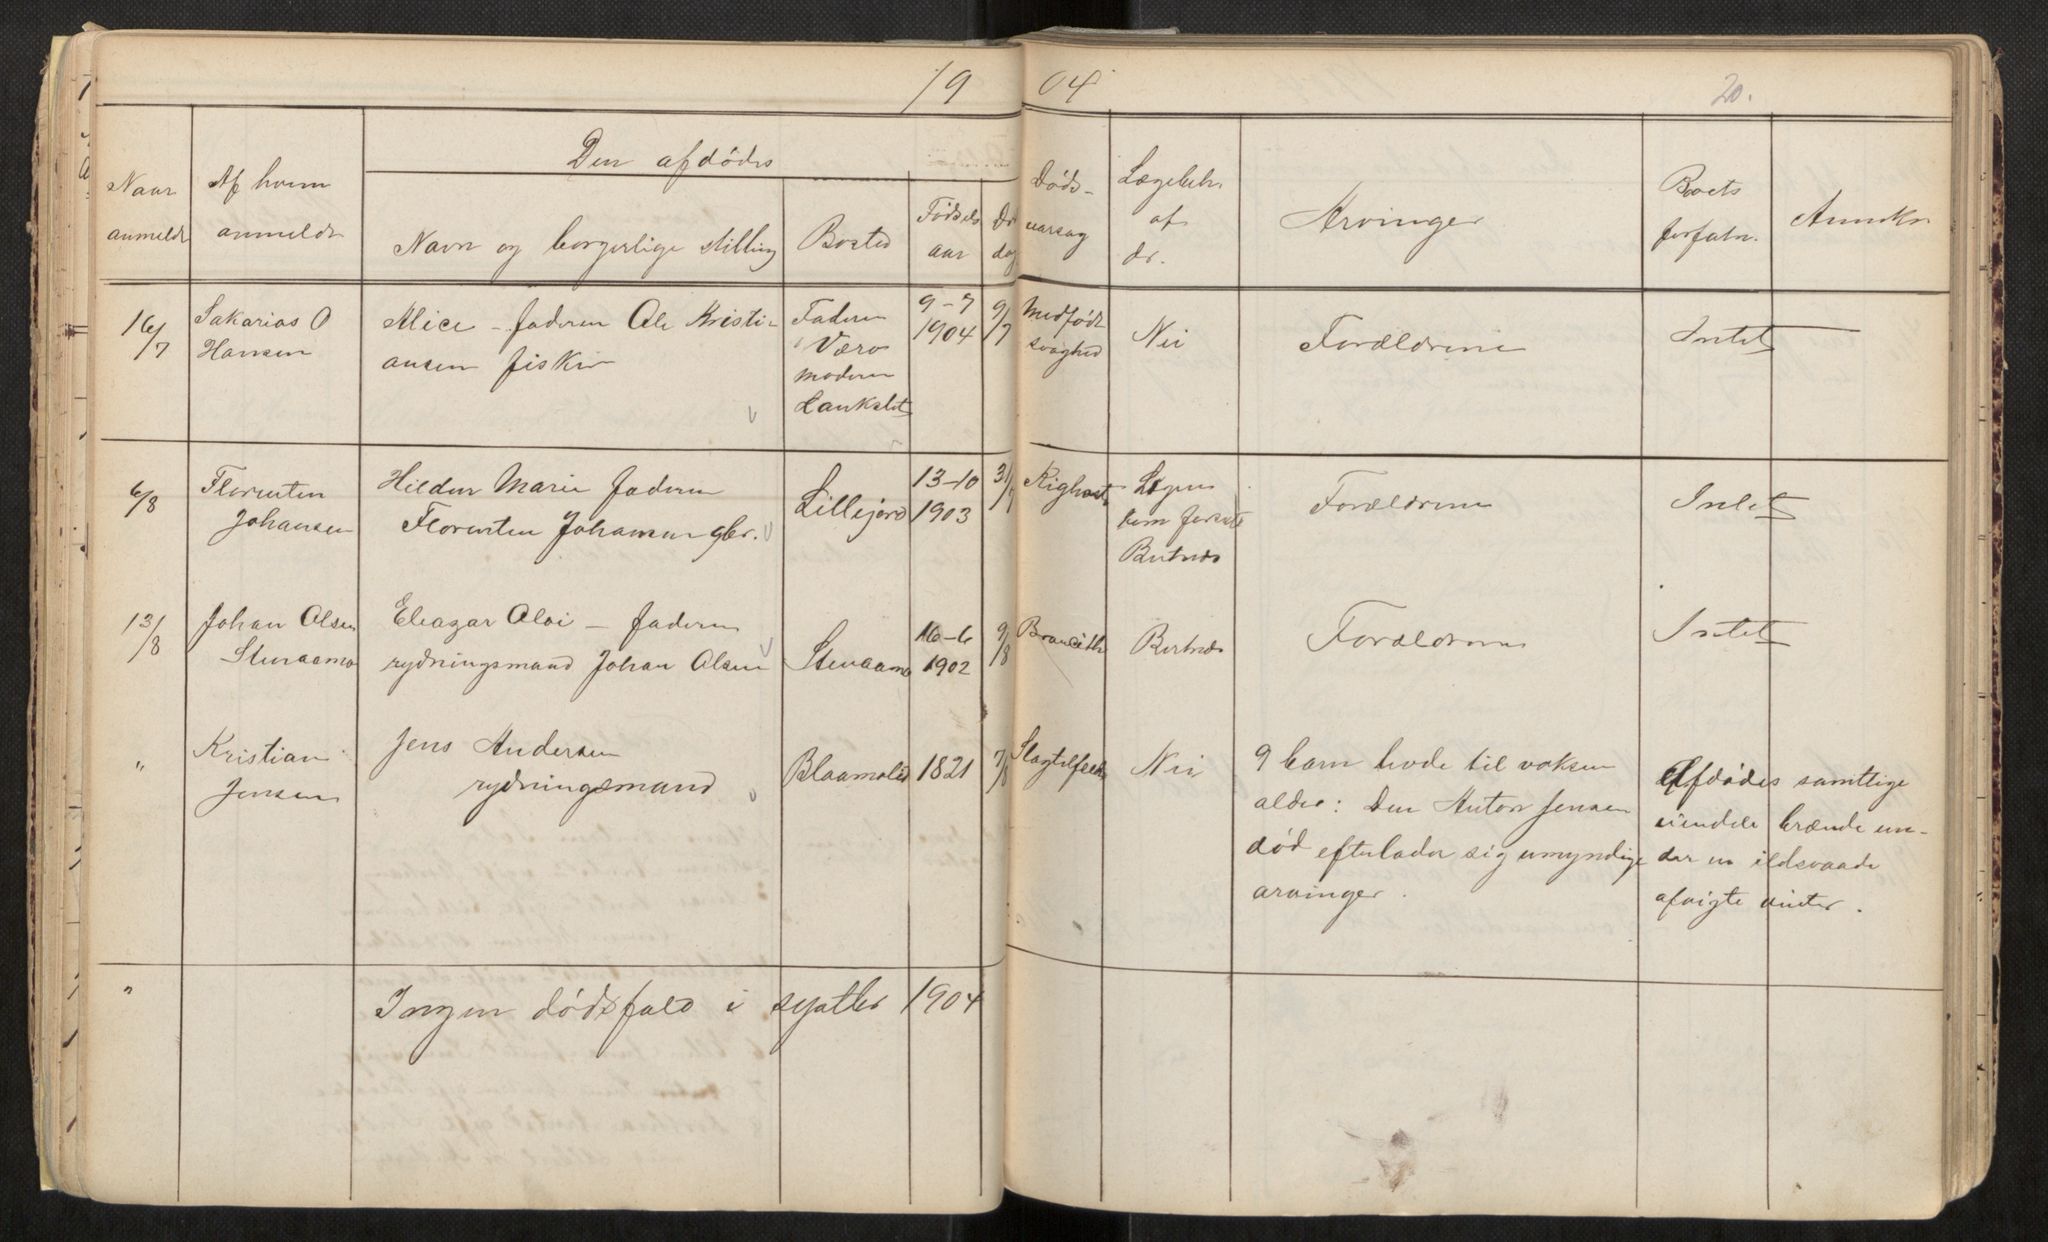 19 04
20.
Den afdødes
Naar anmeldt
Af hvem anmeldt
Navn og borgerlige stilling
Bosted
Fødsels aar
Dødsaarsag
Lægebeh. af dr.
Arvinger
Boets forfatn.
16/7
Sakarias O Hansen
Alice – faderen Ole Kristiansen fisker
Faderen Værø moderen Laukslet
9-7 1904
9/7
Medfødt svaghed
Nei
Forældrene
Intet
6/8
Florenten Johansen
Hildur Marie faderen Florenten Johansen gbr.
Lillejord
13-10 1903
31/7
Kighost
kom
Bertnæs
Forældrene
Intet
13/8
Johan Olsen Stenaamo
Eleazar Olai – faderen rydningsmand Johan Olsen
Stenaamo
16-6 1902
9/8
Bertnæs
Forældrene
Intet
"
Kristian Jensen
Jens Andersen rydningsmand
Blaamoli
1821
7/8
Nei
9 barn levde til voksen
alder: Den Anton Jensen
død efterlader sig umyndige
arvinger.
Afdødes samtlige
eiendele brænde un-
der en ildsvaade
afvigte vinter.
"
Ingen dødsfald i septbr 1904